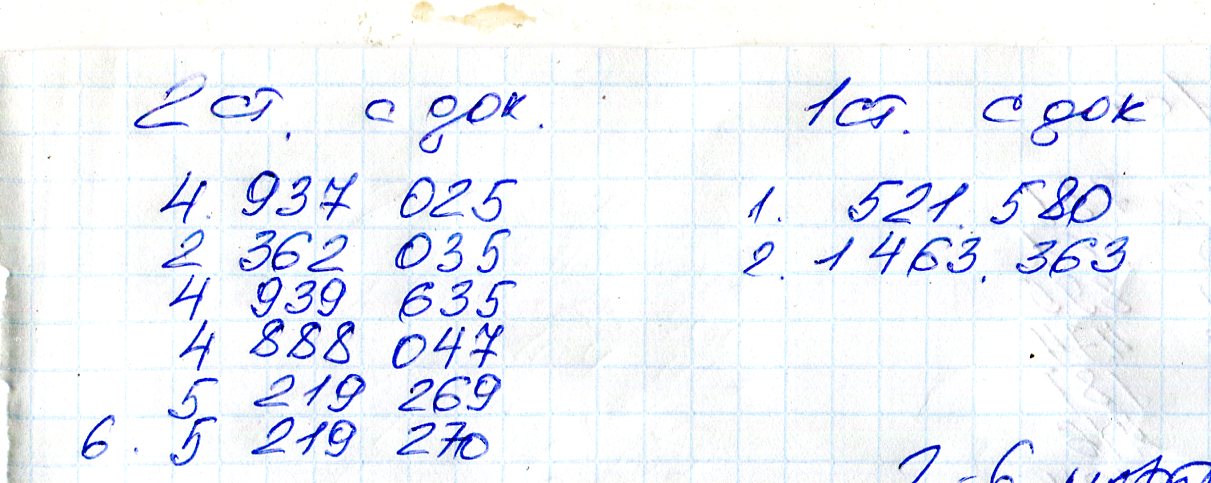 2 ст. с док.
4 937 025
2 362 035
4 939 635
4 888 047
5 219 269
6. 5 219 270
1 ст. с док
1. 521. 580
2. 1 463. 363